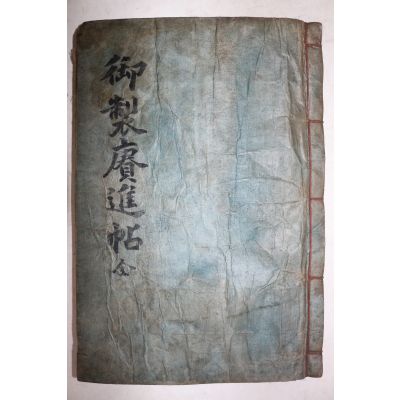 御製賡進帖 全